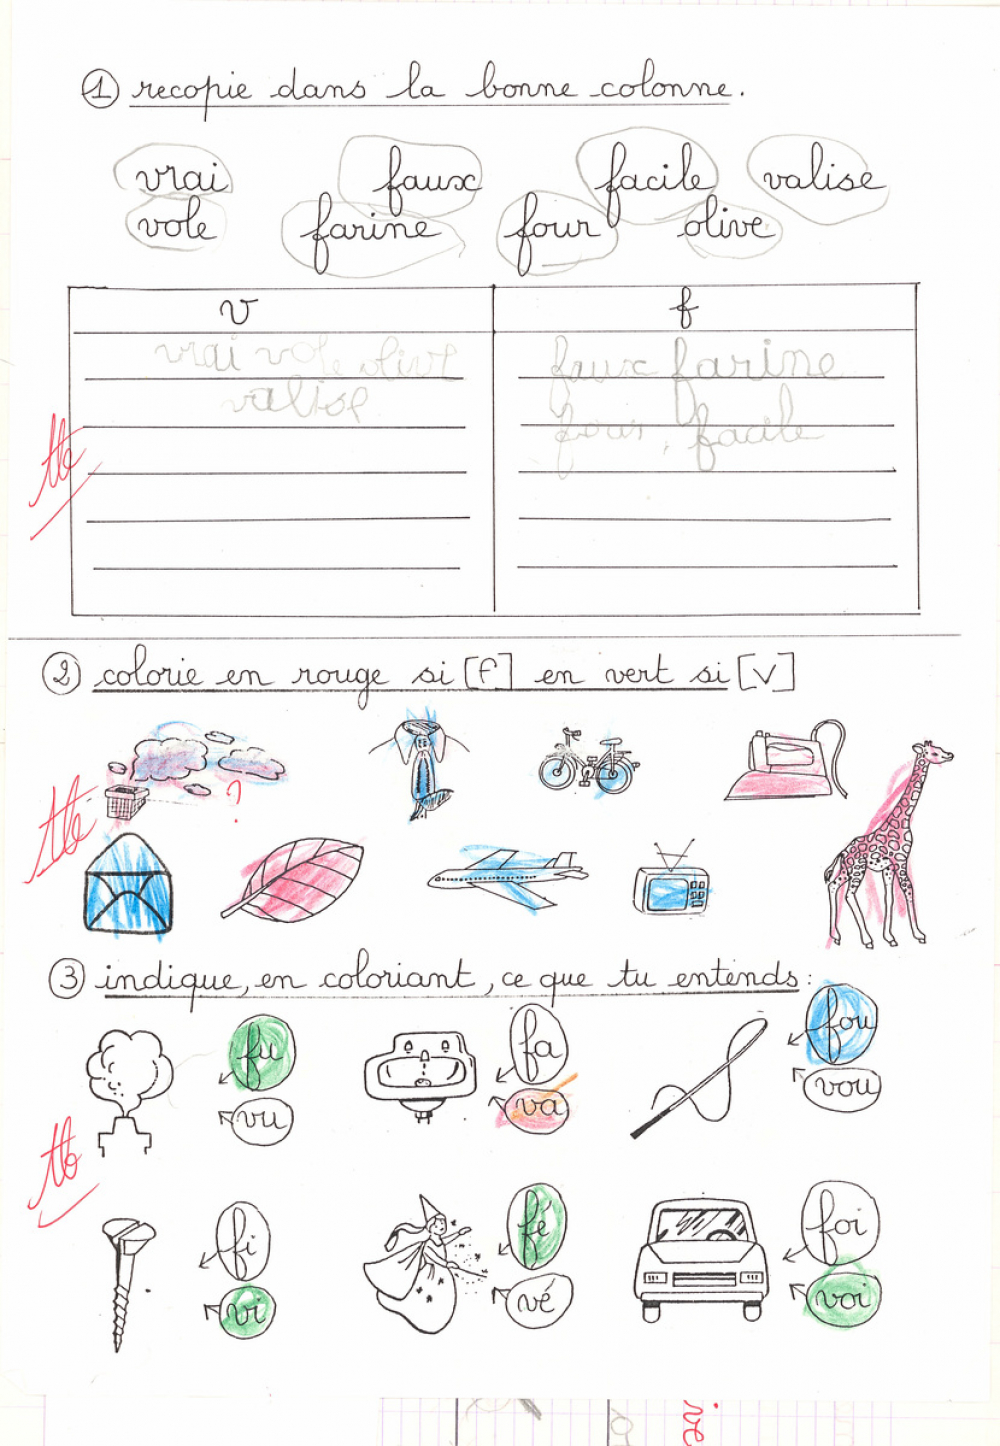 1 recopie dans la bonne colonne.
vrai faux facile valise
vole farine four olive
v f
vrai vole olive faux farine
valise four, facile
tb
2 colorie en rouge si [f] en vert si [v]
tb
?
3 indique, en coloriant, ce que tu entends :
fu fa fou
vu va vou
tb
fi fé foi
vi vé voi